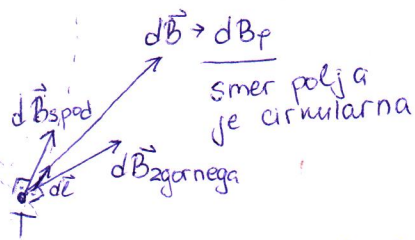 dB⃗ → dBφ
smer polja
je cirkularna
dB⃗spod
dB⃗zgornega
dl⃗
T